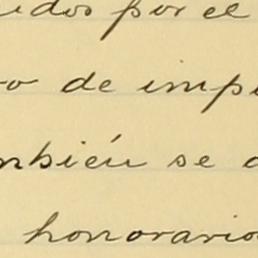 idos por el
o de imp
mbién se
honorario